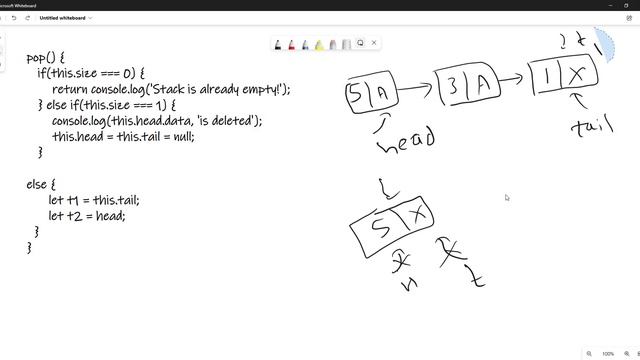 Microsoft Whiteboard
Untitled whiteboard
pop() {
if(this.size === 0) {
return console.log('Stack is already empty!');
} else if(this.size === 1) {
console.log(this.head.data, 'is deleted');
this.head = this.tail = null;
}
else {
let t1 = this.tail;
let t2 = head;
}
}
5 | A
3 | A
1 | X
head
tail
5 X
t
100%